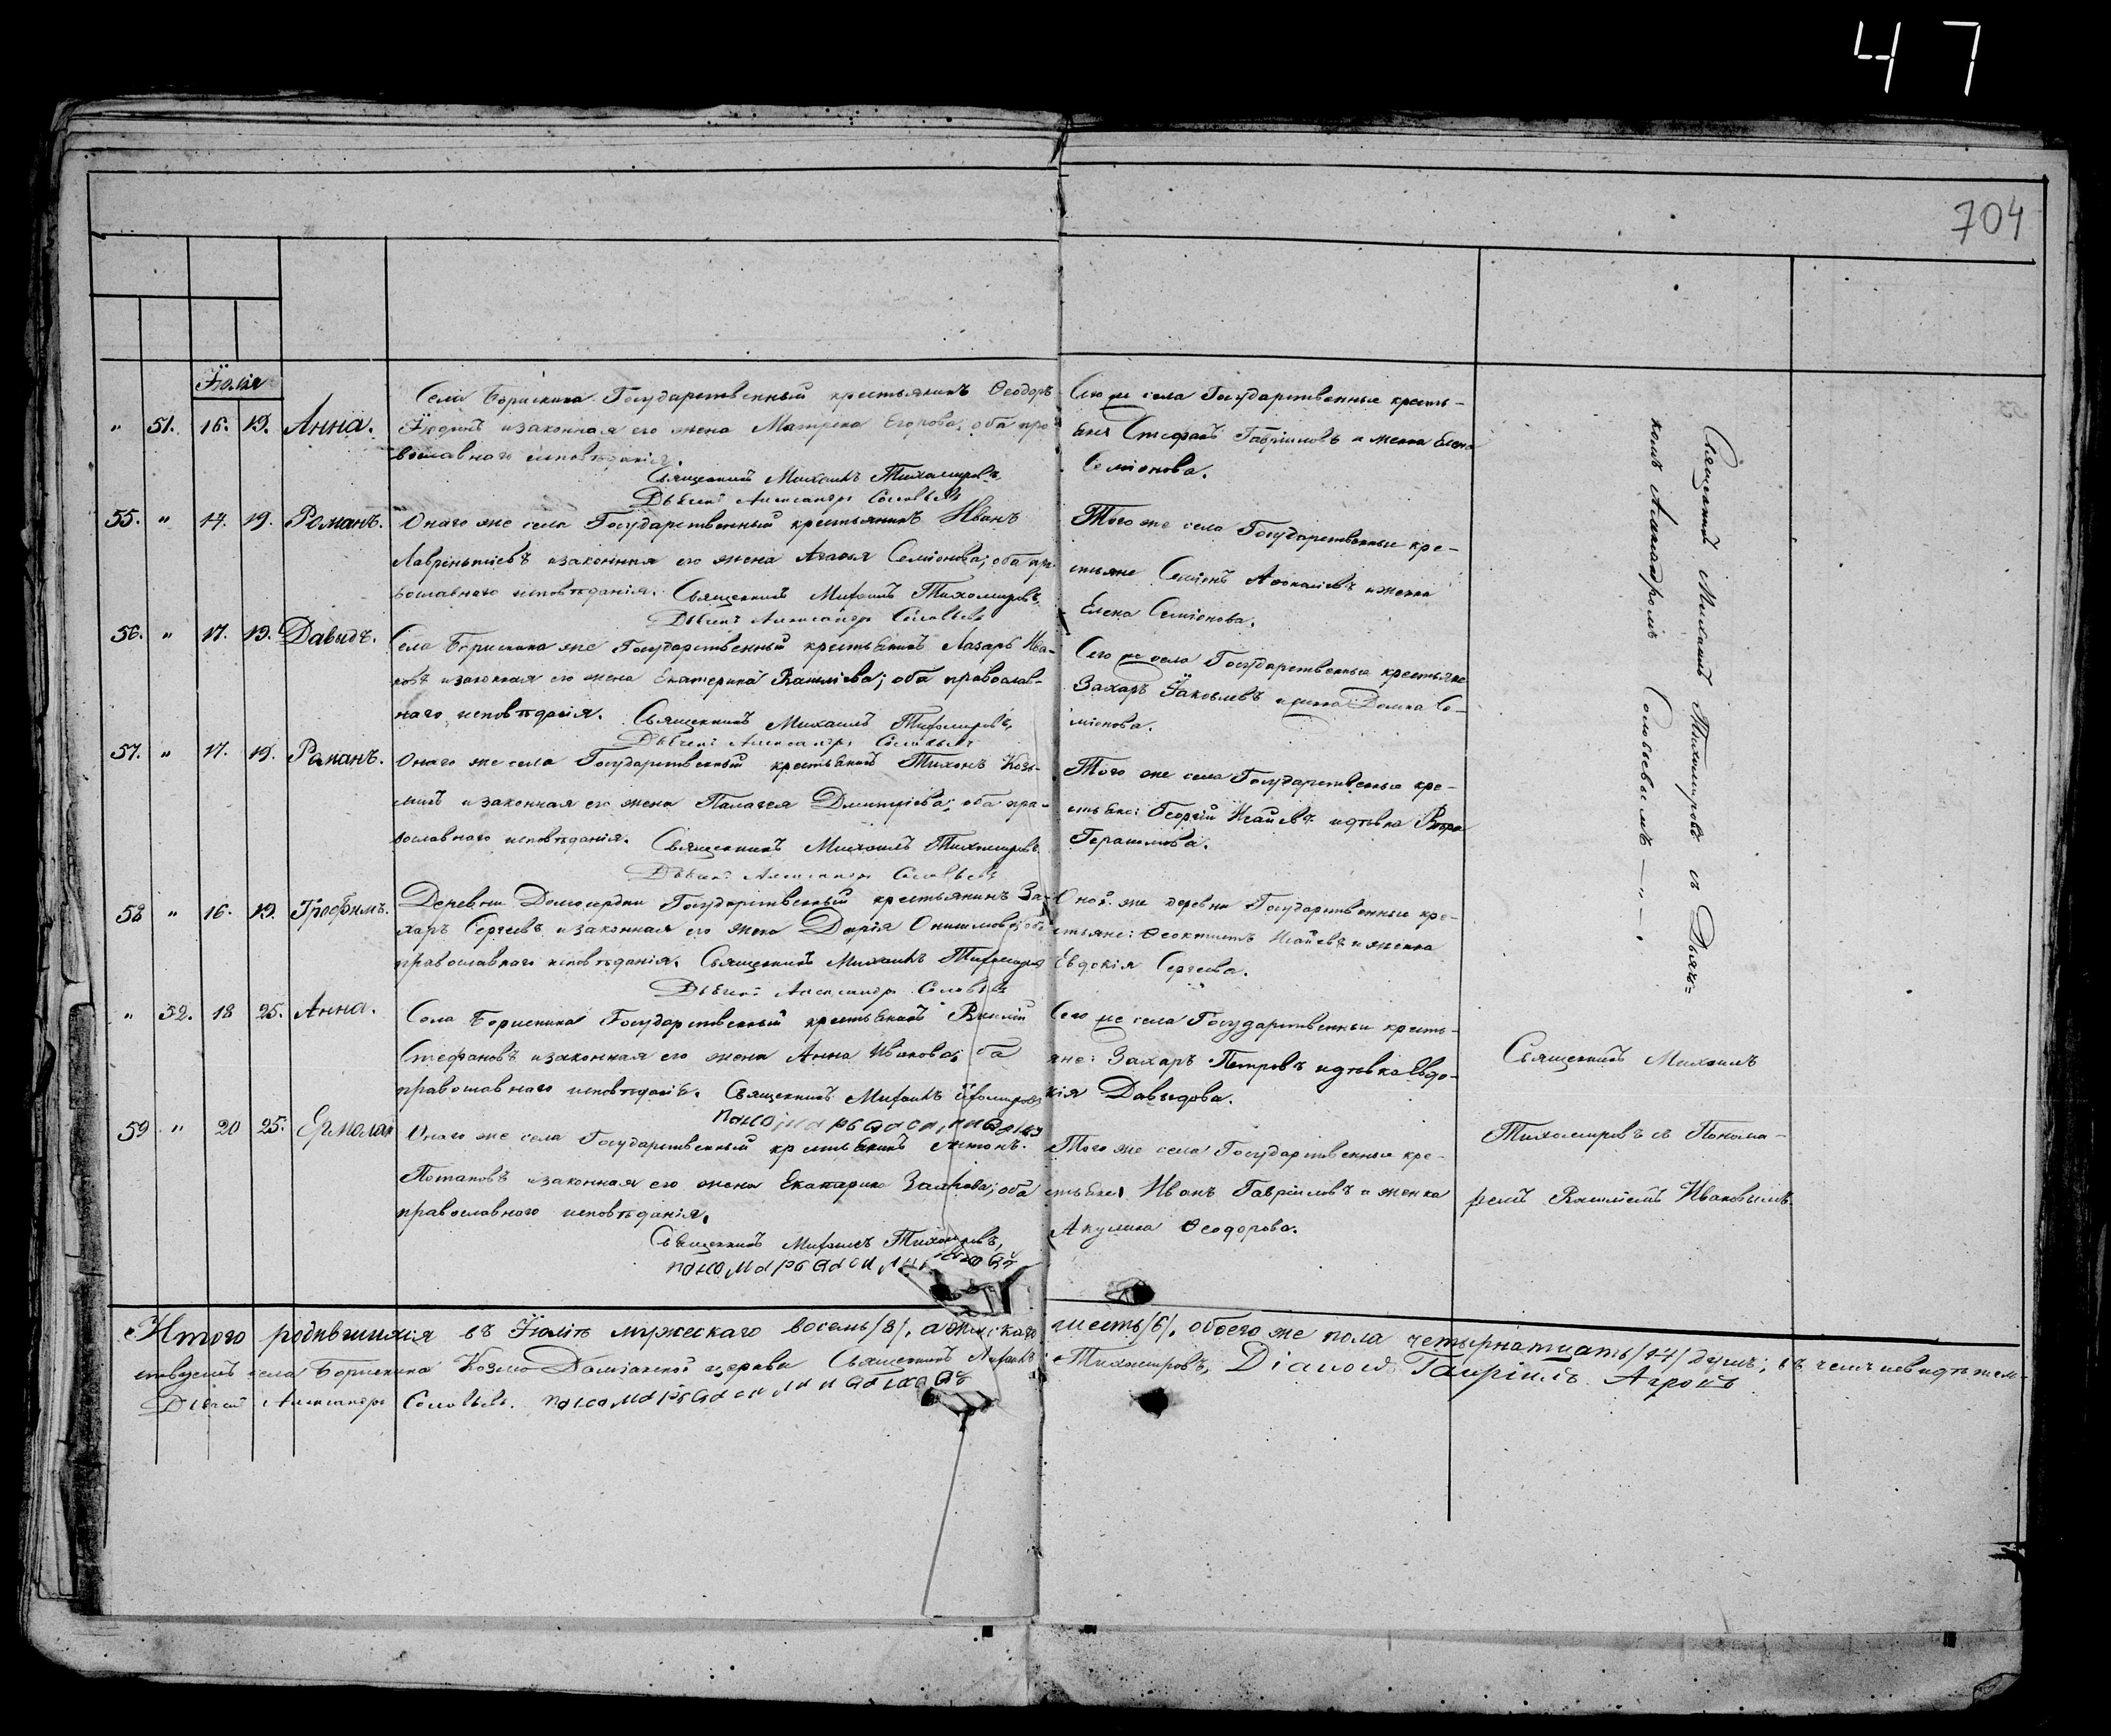 47
704
Іюлія
" 51. 16. 19. Анна.
Села Борискина Государственный крестьянинъ Ѳеодоръ
и законная его жена Матрена Егорова; оба пра-
вославнаго исповѣданія.
Священникъ Михаилъ Тихомировъ,
Дьячекъ Александръ Соловьевъ
Сего же села Государственные кресть-
яне Стефанъ Гавриловъ и женка Елена
Семіонова.
55. " 14. 19. Романъ.
Онаго же села Государственный крестьянинъ Иванъ
Лаврентіевъ и законная его жена Агафья Семіонова; оба пра-
вославнаго исповѣданія. Священникъ Михаилъ Тихомировъ,
Дьячекъ Александръ Соловьевъ
Того же села Государственные кре-
стьяне Семіонъ и женка
Елена Семіонова.
56. " 17. 19. Давидъ.
Села Борискина же Государственный крестьянинъ Лазарь Ива-
новъ и законная его жена Екатерина Василіева; оба православ-
наго исповѣданія. Священникъ Михаилъ Тихомировъ,
Дьячекъ Александръ Соловьевъ
Сего же села Государственные крестьяне
Захаръ Іаковлевъ и женка Домна Се-
міонова.
57. " 17. 19. Романъ.
Онаго же села Государственный крестьянинъ Тихонъ Козь-
минъ и законная его жена Палагея Дмитріева; оба пра-
вославнаго исповѣданія. Священникъ Михаилъ Тихомировъ
Дьячекъ Александръ Соловьевъ
Того же села Государственные кре-
стьяне: Георгій Исаіевъ и дѣвка
Герасимова.
58 " 16. 19. Трофимъ.
Деревни Государственный крестьянинъ За-
харъ Сергеевъ и законная его жена Дарія Онисимова; оба
православнаго исповѣданія. Священникъ Михаилъ Тихомировъ
Дьячекъ Александръ Соловьевъ
Оной же деревни Государственные кре-
стьяне: Ѳеоктистъ Исаіевъ и женка
Евдокія Сергеева.
Священникъ Михаилъ Тихомировъ съ Дьяч=
комъ Александромъ Соловьевымъ — " — .
" 52. 18 25. Анна.
Села Борискина Государственный крестьянинъ Василій
Стефановъ и законная его жена Анна Иванова; оба
православнаго исповѣданія. Священникъ Михаилъ Тихомировъ
Сего же села Государственныи кресть-
яне: Захаръ Петровъ и дѣвка Евдо-
кія Давыдова.
59 " 20 25. Ермолай
Онаго же села Государственный крестьянинъ Антонъ
Потаповъ и законная его жена Екатерина Захарова; оба
православнаго исповѣданія.
Священникъ Михаилъ Тихомировъ,
пономарь Василій Ивановъ
Того же села Государственные кре-
стьяне Иванъ Гавріиловъ и женка
Акулина Ѳеодорова.
Священникъ Михаилъ
Тихомировъ съ Понома-
ремъ Василіемъ Ивановымъ.
Итого родившихся въ Іюлѣ мужескаго восемь /8/, а женскаго шесть /6/, обоего же пола четырнатцать /14/ душъ; въ чемъ и свидѣтель-
ствуемъ села Борискина Козмо-Даміанской церкви Священникъ Михаилъ Тихомировъ, Діаконъ Гавріилъ
Дьячекъ Александръ Соловьевъ. пономарь Василій Ивановъ